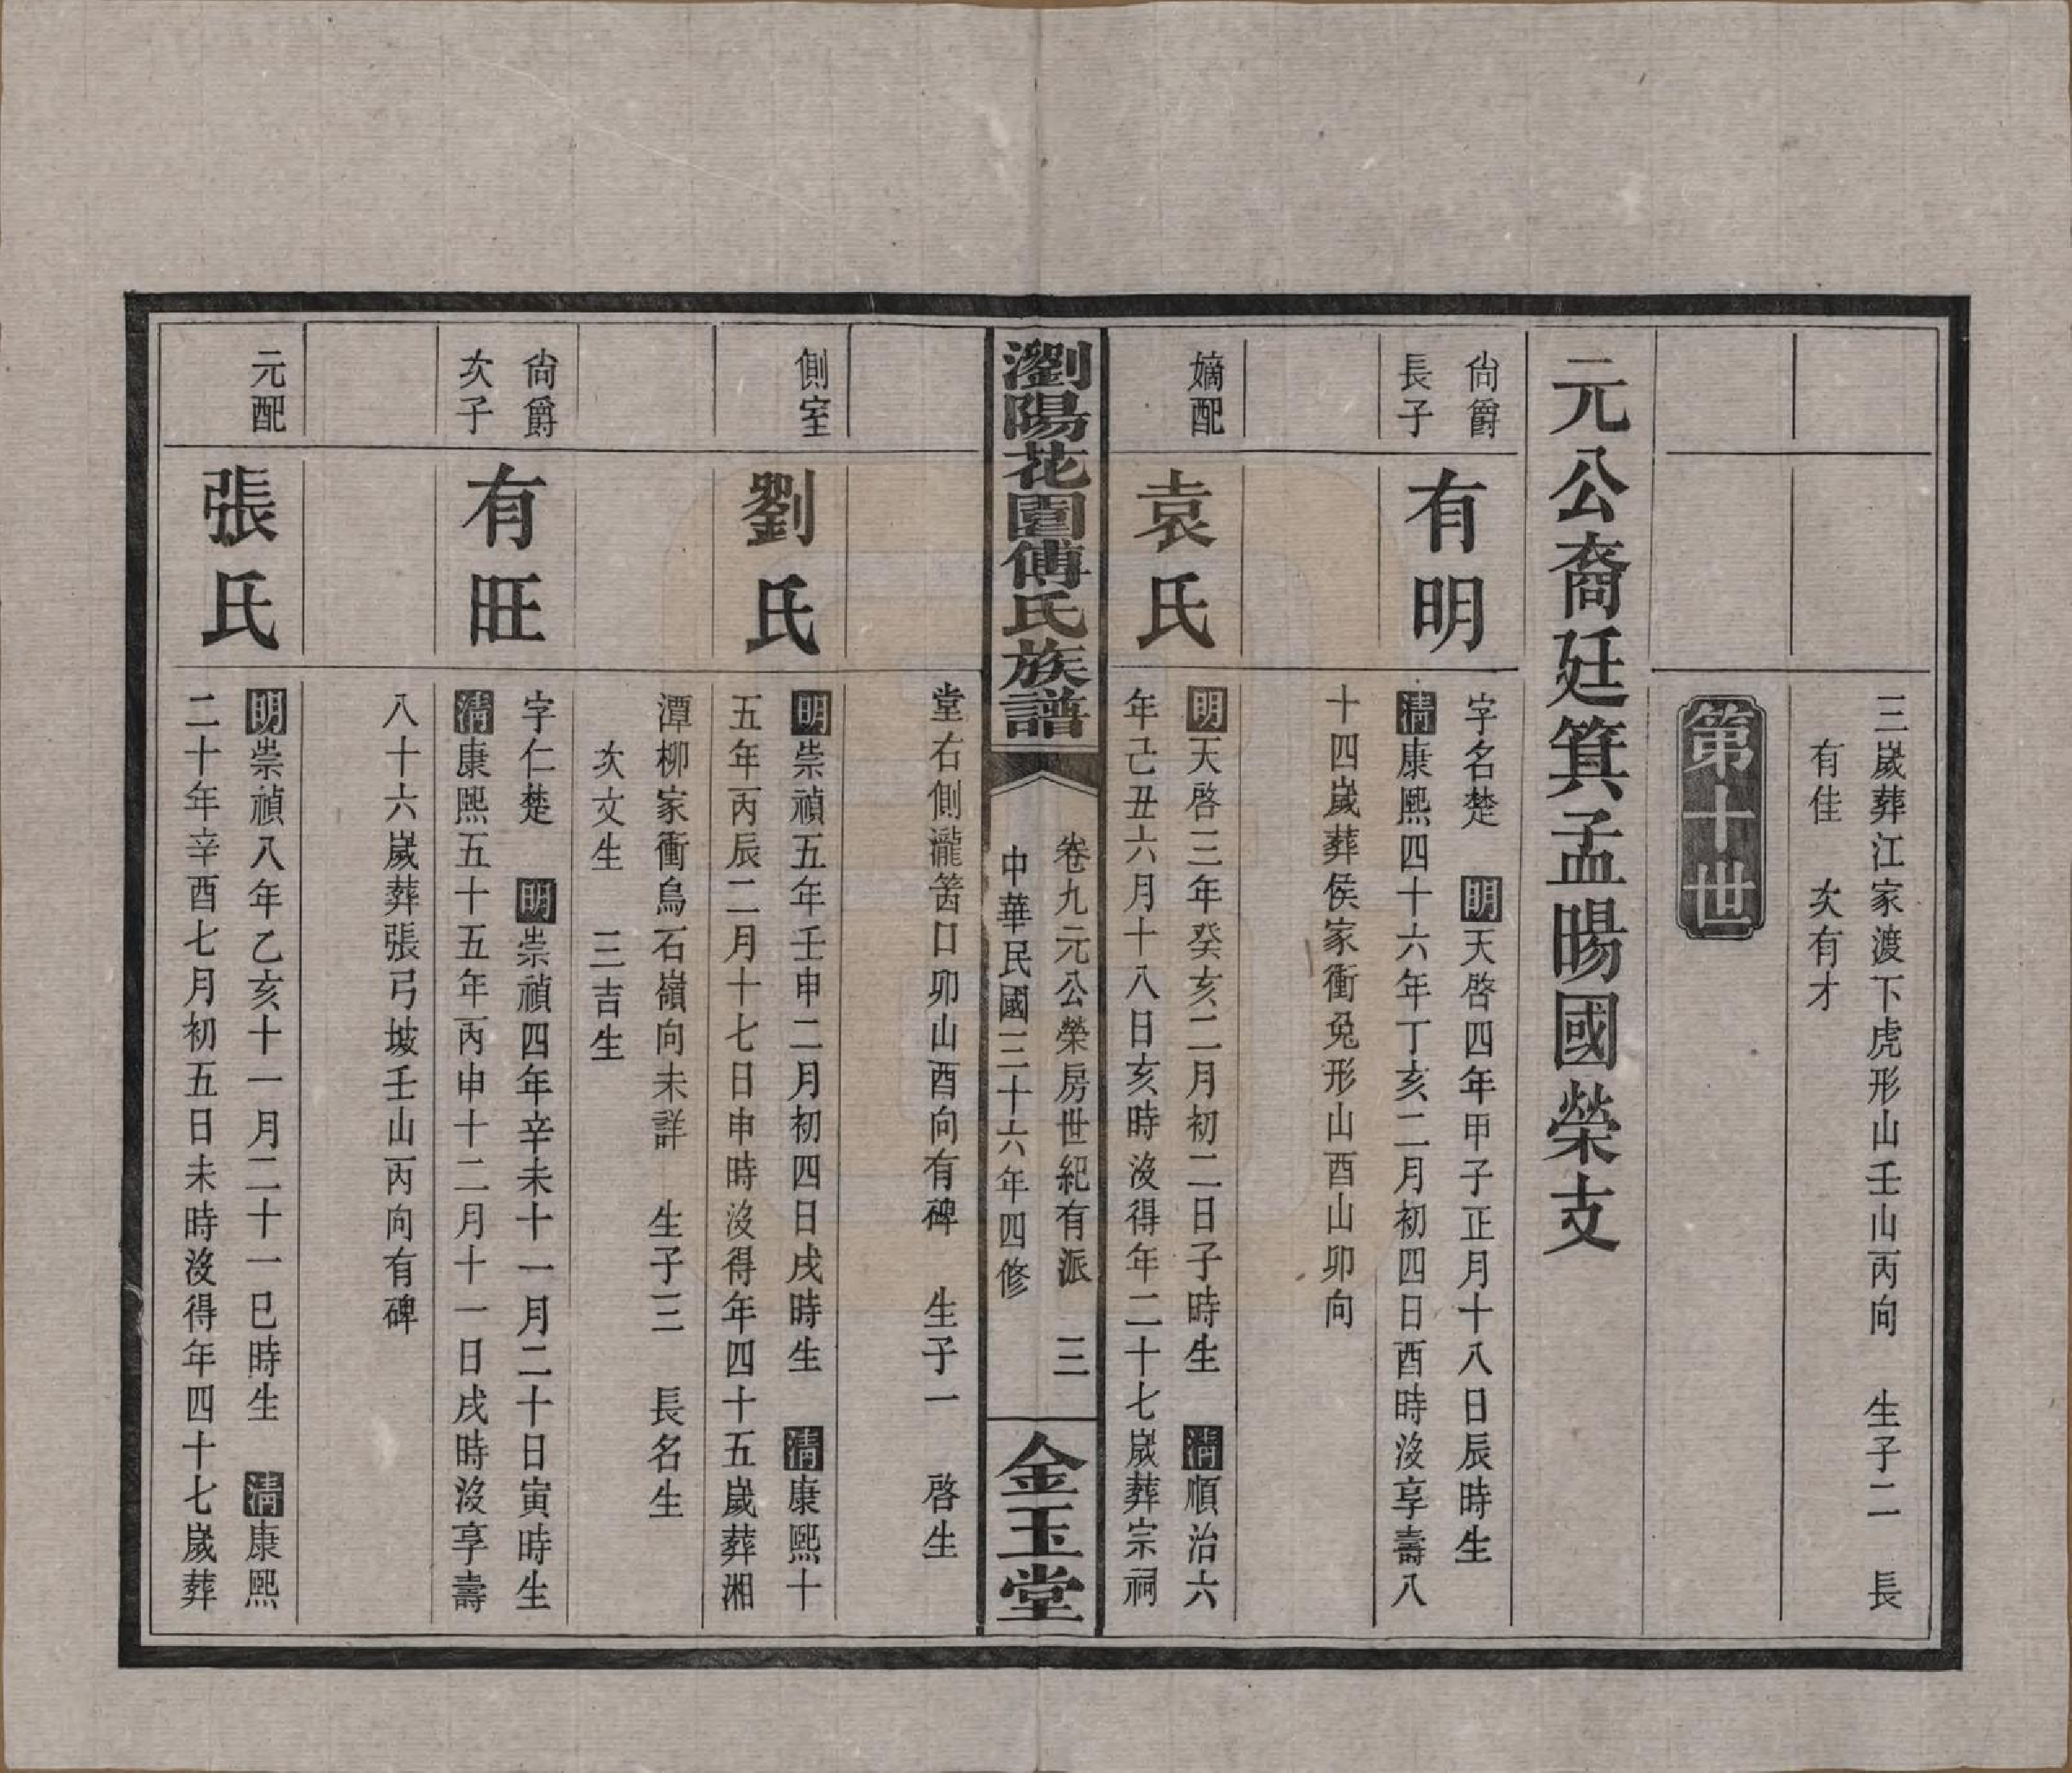 三歲葬江家渡下虎形山壬山丙向　生子二　長
有佳　次有才
第十世
元公裔廷箕孟暘國榮支
尙爵
長子
有明
字名楚　明天啓四年甲子正月十八日辰時生
清康熙四十六年丁亥二月初四日酉時沒享壽八
十四歲葬侯家衝兔形山酉山卯向
嫡配
袁氏
明天啓三年癸亥二月初二日子時生　清順治六
年己丑六月十八日亥時沒得年二十七歲葬宗祠
瀏陽花園傅氏族譜
卷九元公榮房世紀有派　三
中華民國三十六年四修
金玉堂
堂右側瀧箬口卯山酉向有碑　生子一　啓生
側室
劉氏
明崇禎五年壬申二月初四日戌時生　清康熙十
五年丙辰二月十七日申時沒得年四十五歲葬湘
潭柳家衝烏石嶺向未詳　生子三　長名生
次文生　三吉生
尙爵
次子
有旺
字仁楚　明崇禎四年辛未十一月二十日寅時生
清康熙五十五年丙申十二月十一日戌時沒享壽
八十六歲葬張弓坡壬山丙向有碑
元配
張氏
明崇禎八年乙亥十一月二十一巳時生　清康熙
二十年辛酉七月初五日未時沒得年四十七歲葬